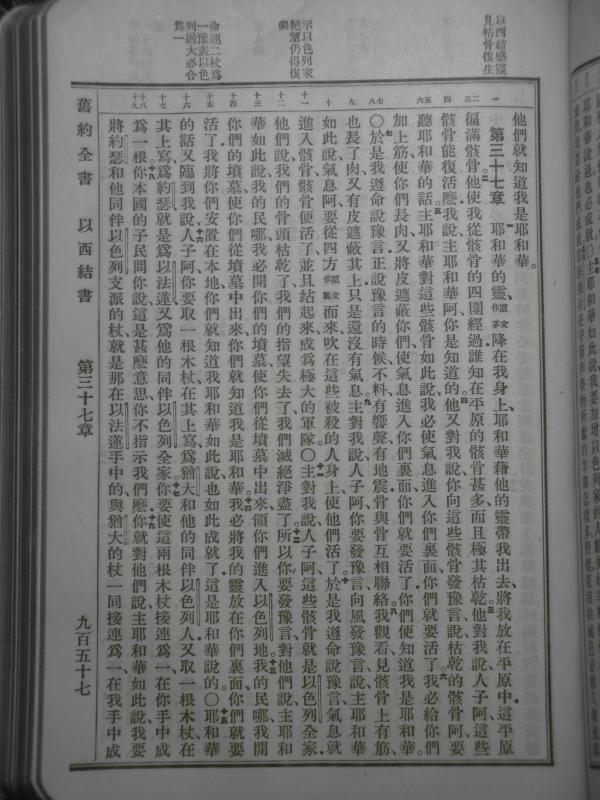 以西結感靈
見枯骨復生
示以色列家
絕望仍得復
興
命連二杖爲
一豫表以色
列猶大必合
爲一
他們就知道我是耶和華。
第三十七章 耶和華的靈降在我身上、耶和華藉他的靈帶我出去、將我放在平原中、這平原
徧滿骸骨、他使我從骸骨的四圍經過、誰知在平原的骸骨甚多、而且極其枯乾、他對我說、人子阿、這些
骸骨能復活麽、我說、主耶和華阿、你是知道的、他又對我說、你向這些骸骨發豫言說、枯乾的骸骨阿、要
聽耶和華的話、主耶和華對這些骸骨如此說、我必使氣息進入你們裏面、你們就要活了、我必給你們
加上筋、使你們長肉、又將皮遮蔽你們、使氣息進入你們裏面、你們就要活了、你們便知道我是耶和華。
〇於是我遵命說豫言、正說豫言的時候、不料、有響聲、有地震、骨與骨互相聯絡、我觀看、見骸骨上有筋、
也長了肉、又有皮遮蔽其上、只是還沒有氣息、主對我說、人子阿、你要發豫言、向風發豫言、說、主耶和華
如此說、氣息阿、要從四方而來、吹在這些被殺的人身上、使他們活了、於是我遵命說豫言、氣息就
進入骸骨、骸骨便活了、並且站起來、成爲極大的軍隊〇主對我說、人子阿、這些骸骨就是以色列全家、
他們說、我們的骨頭枯乾了、我們的指望失去了、我們滅絕淨盡了、所以你要發豫言、對他們說、主耶和
華如此說、我的民哪、我必開你們的墳墓、使你們從墳墓中出來、領你們進入以色列地、我的民哪、我開
你們的墳墓、使你們從墳墓中出來、你們就知道我是耶和華、我必將我的靈放在你們裏面、你們就要
活了、我將你們安置在本地、你們就知道我耶和華如此說、也如此成就了、這是耶和華說的〇耶和華
的話又臨到我說、人子阿、你要取一根木杖、在其上寫爲猶大和他的同伴以色列人、又取一根木杖、在
其上寫爲約瑟、就是爲以法蓮、又爲他的同伴以色列全家、你要使這兩根木杖接連爲一、在你手中成
爲一根、你本國的子民問你說、這是甚麽意思、你不指示我們麽、你就對他們說、主耶和華如此說、我要
將約瑟和他同伴以色列支派的杖、就是那在以法蓮手中的、與猶大的杖一同接連爲一、在我手中成
舊約全書 以西結書 第三十七章 九百五十七